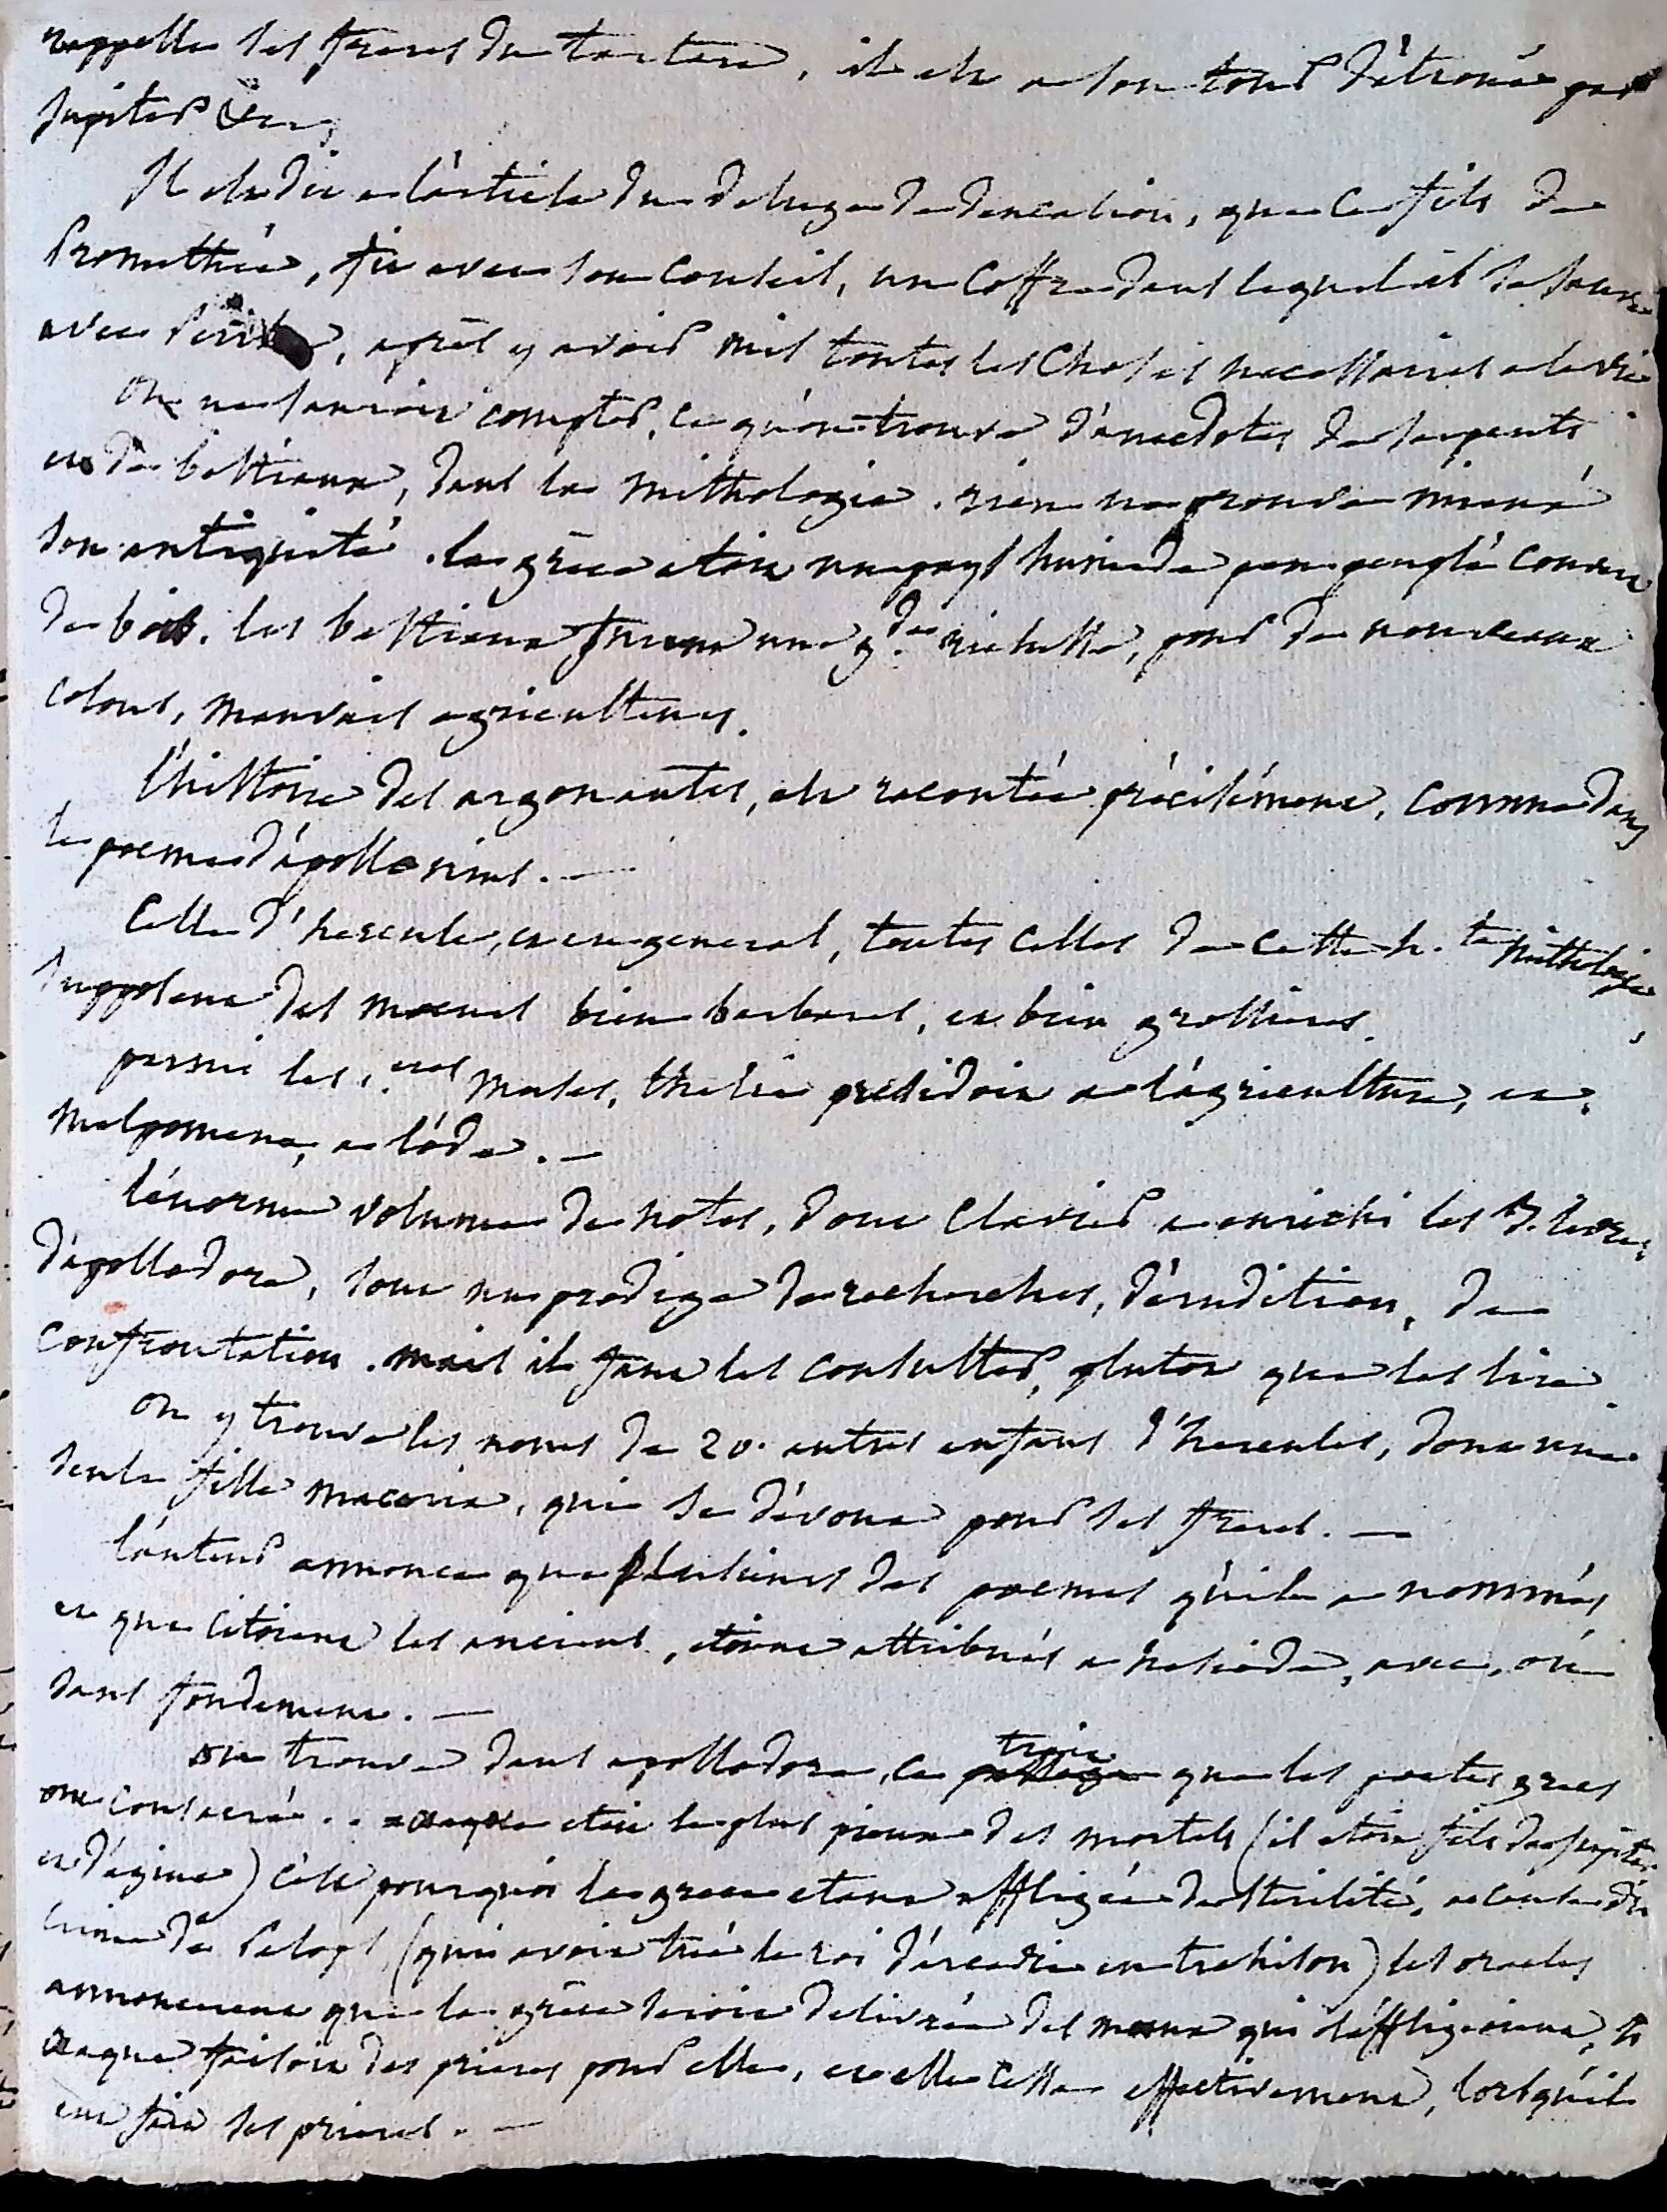 rappelle ses freres du tartare, il est a son tour détroné par
Jupiter &c.
Il est dit a l'article du deluge de deucalion, que ce fils de
Promethée, fit avec son conseil, un coffre dans lequel il se sauva
avec Pirrha, aprèt y avoir mis toutes les choses necessaires a la vie
On ne sauroit compter, ce qu'on trouve d'anecdotes de serpents
et de bestiaux, dans la mithologie. rien ne prouve mieux
son antiquité. la grèce etoit un pays humide peu peuplé couvert
de bois. les bestiaux furent une g.de richesse, pour de nouveaux
colons, mauvais agriculteurs.
l'histoire des argonautes, est racontée précisément, comme dans
le poeme d'apollonius. —
Celle d'hercule, et en general, toutes celles de cette h.te mithologie
supposent des moeurs bien barbares, et bien grossieres.
parmi les 1.eres muses, thalie presidoit a l'agriculture, et
melpomene, a l'ode. —
l'énorme volume de notes, dont Clavier a enrichi les 3. livres
d'apollodore, sont un prodige de recherches, d'érudition, de
confrontation. mais il faut les consulter, plutot que les lire
On y trouve les noms de 20. autres enfans d'hercules, dont une
seule fille macaria, qui se dévoua pour ses freres. —
l'auteur annonce que plusieurs des poemes qu'il a nommés
et que citoient les anciens, etoient attribués a hesiode, avec, où
sans fondement. —
on trouve dans apollodore, ce trait que les poetes grecs
ont consacré. . eaque etoit le plus pieux des mortels (il etoit fils de Jupiter
et d'égine) c'est pourquoi la grece etant affligée de sterilité, a cause du
crime de Pelops (qui avoit tué le roi d'arcadie en trahison) les oracles
annoncerent que la grèce seroit delivrée des maux qui l'affligeoient, si
eaque faisoit des prieres pour elle, et elle cessa effectivement, lorsqu'il
eut fait ses prieres. —